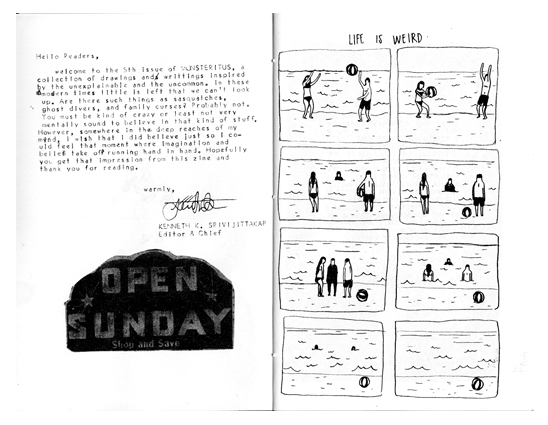 Hello Readers,
welcome to the 5th issue of MONSTERITUS, a
collection of drawings and writtings inspired
by the unexplainable and the uncommon. In these
modern times little is left that we can't look
up. Are there such things as sasquatches,
ghost divers, and family curses? Probably not.
You must be kind of crazy or least not very
mentally sound to believe in that kind of stuff.
However, somewhere in the deep reaches of my
mind, I wish that I did believe just so I co-
uld feel that moment where imagination and
belief take off running hand in hand. Hopefully
you get that impression from this zine and
thank you for reading.
warmly,
KENNETH K. SRIVIJITTAKAR
Editor & Chief
OPEN
SUNDAY
Shop and Save
LIFE IS WEIRD